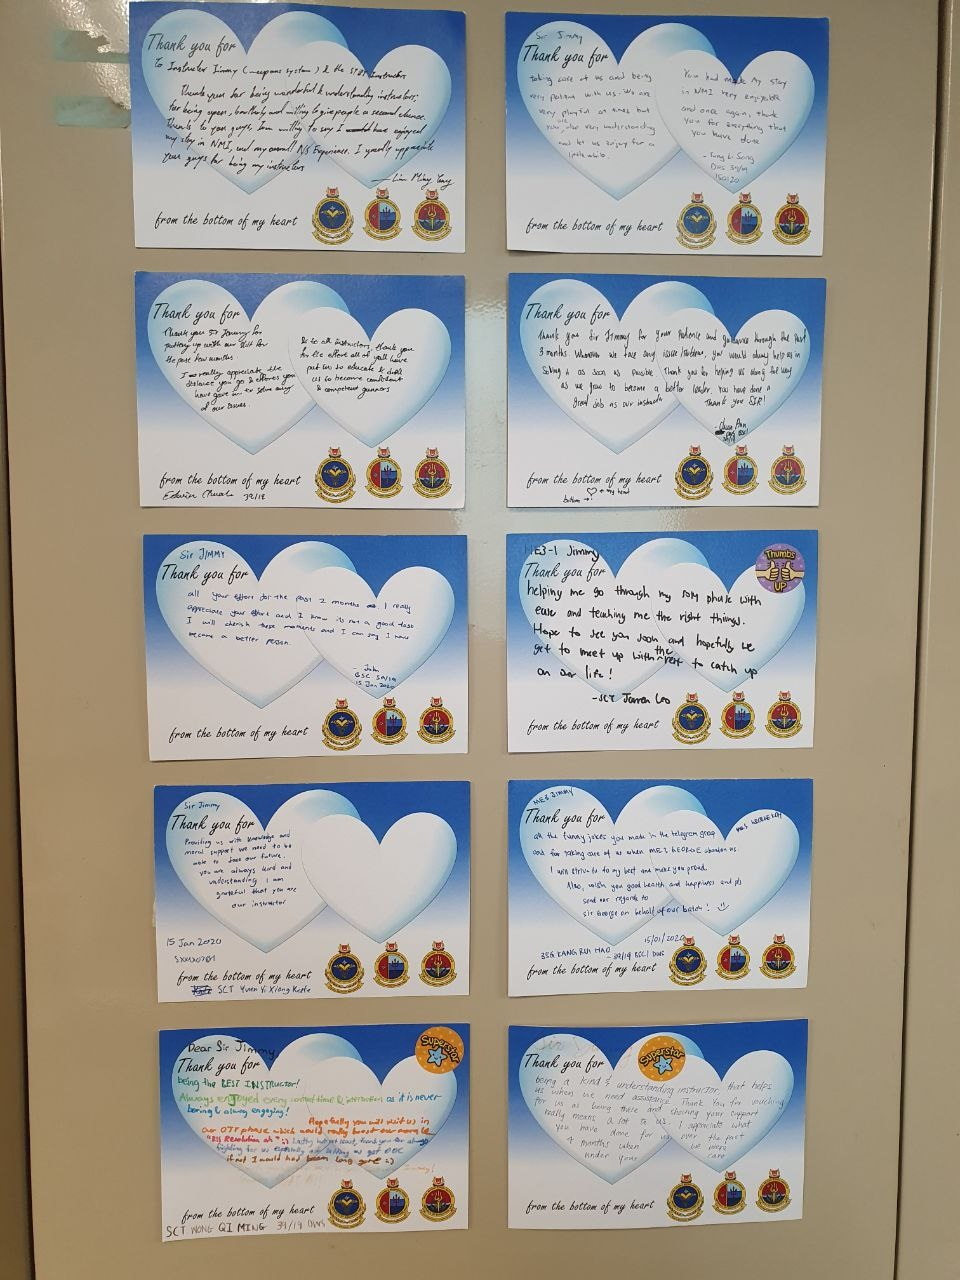 Thank you for
To Instructor Jimmy (weapons system) & the STOT Instructors
Thank you for being wonderful & understanding instructors,
for being open, brotherly and willing to give people a second chance.
Thanks to you guys, I am willing to say I would have enjoyed
my stay in NMI, and my overall NS Experience. I greatly appreciate
your guys for being my instructors
- Lim Ming Yang
from the bottom of my heart
Sir Jimmy
Thank you for
taking care of us and being
very patient with us. We are
very playful at times but
you are very understanding
and let us enjoy for a
little while.
You had made my stay
in NMI very enjoyable
and once again, thank
you for everything that
you have done
DWS 39/19
150120
from the bottom of my heart
Thank you for
Thank you Sir Jimmy for
putting up with our shit for
the past few months
I really appreciate the
distance you go & efforts you
have gave us to solve many
of our issues.
& to all instructors, thank you
for the effort all of yall have
put in to educate & drill
us to become confident
& competent gunners
from the bottom of my heart
Edwin Chua 39/19
Thank you for
Thank you Sir Jimmy for your patience and guidance through the past
3 months. Whenever we face any issue/problem, you would always help us in
solving it as soon as possible. Thank you for helping us along the way
as we grow to become a better leader. You have done a
good job as our instructor. Thank you SIR!
from the bottom of my heart
bottom → ♡ → my head
Sir JIMMY
Thank you for
all your effort for the past 2 months. I really
appreciate your effort and I know is not a good task
I will cherish these moments and I can say I have
become a better person.
- John
GSC 39/19
15 Jan 2020
from the bottom of my heart
ME3-1 Jimmy
Thank you for
Thumbs
UP
helping me go through my phase with
ease and teaching me the right things.
Hope to see you soon and hopefully we
get to meet up with the rest to catch up
on our life!
- SCT Jarren Loo
from the bottom of my heart
Sir Jimmy
Thank you for
Providing us with knowledge and
moral support we need to be
able to face our future.
you are always kind and
understanding. I am
grateful that you are
our instructor
15 Jan 2020
from the bottom of my heart
SCT Yuen Yi Xiang
ME3 JIMMY
Thank you for
all the funny jokes you made in the telegram group
and for taking care of us when ME3 GEORGE abandon us.
I will strive to do my best and make you proud.
Also, wish you good health and happiness and pls
send our regards to
sir George on behalf of our batch! :)
15/01/2020
3SG KANG RUI HAO
- 39/19 SSC/ DWS
from the bottom of my heart
Dear Sir Jimmy,
Thank you for
Superstar
being the BEST INSTRUCTOR!
Always enjoyed every contact time & interaction as it is never
boring & always engaging!
Hopefully you will visit us in
our OJT phase which would really boost our morale
"RSS Resolution ah" :) Lastly but not least, thank you for always
fighting for us especially
if not I would had been long gone :)
from the bottom of my heart
SCT WONG QI MING 39/19 DWS
Thank you for
Superstar
being a kind & understanding instructor, that helps
us when we need assistance. Thank You for vouching
for us as being there and showing your support
really means a lot to us. I appreciate what
you have done for us over the past
4 months when we were
under your care
from the bottom of my heart